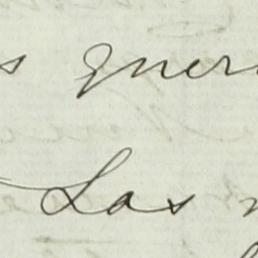 s quer
Las